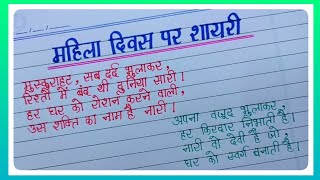 महिला दिवस पर शायरी
मुस्कुराहट, सब दर्द भुलाकर,
रिश्तों में बंद थी दुनिया सारी।
हर घर को रोशन करने वाली,
उस शक्ति का नाम है नारी।
अपना वजूद भुलाकर,
हर किरदार निभाती है।
नारी वो देवी है जो,
घर को स्वर्ग बनाती है।